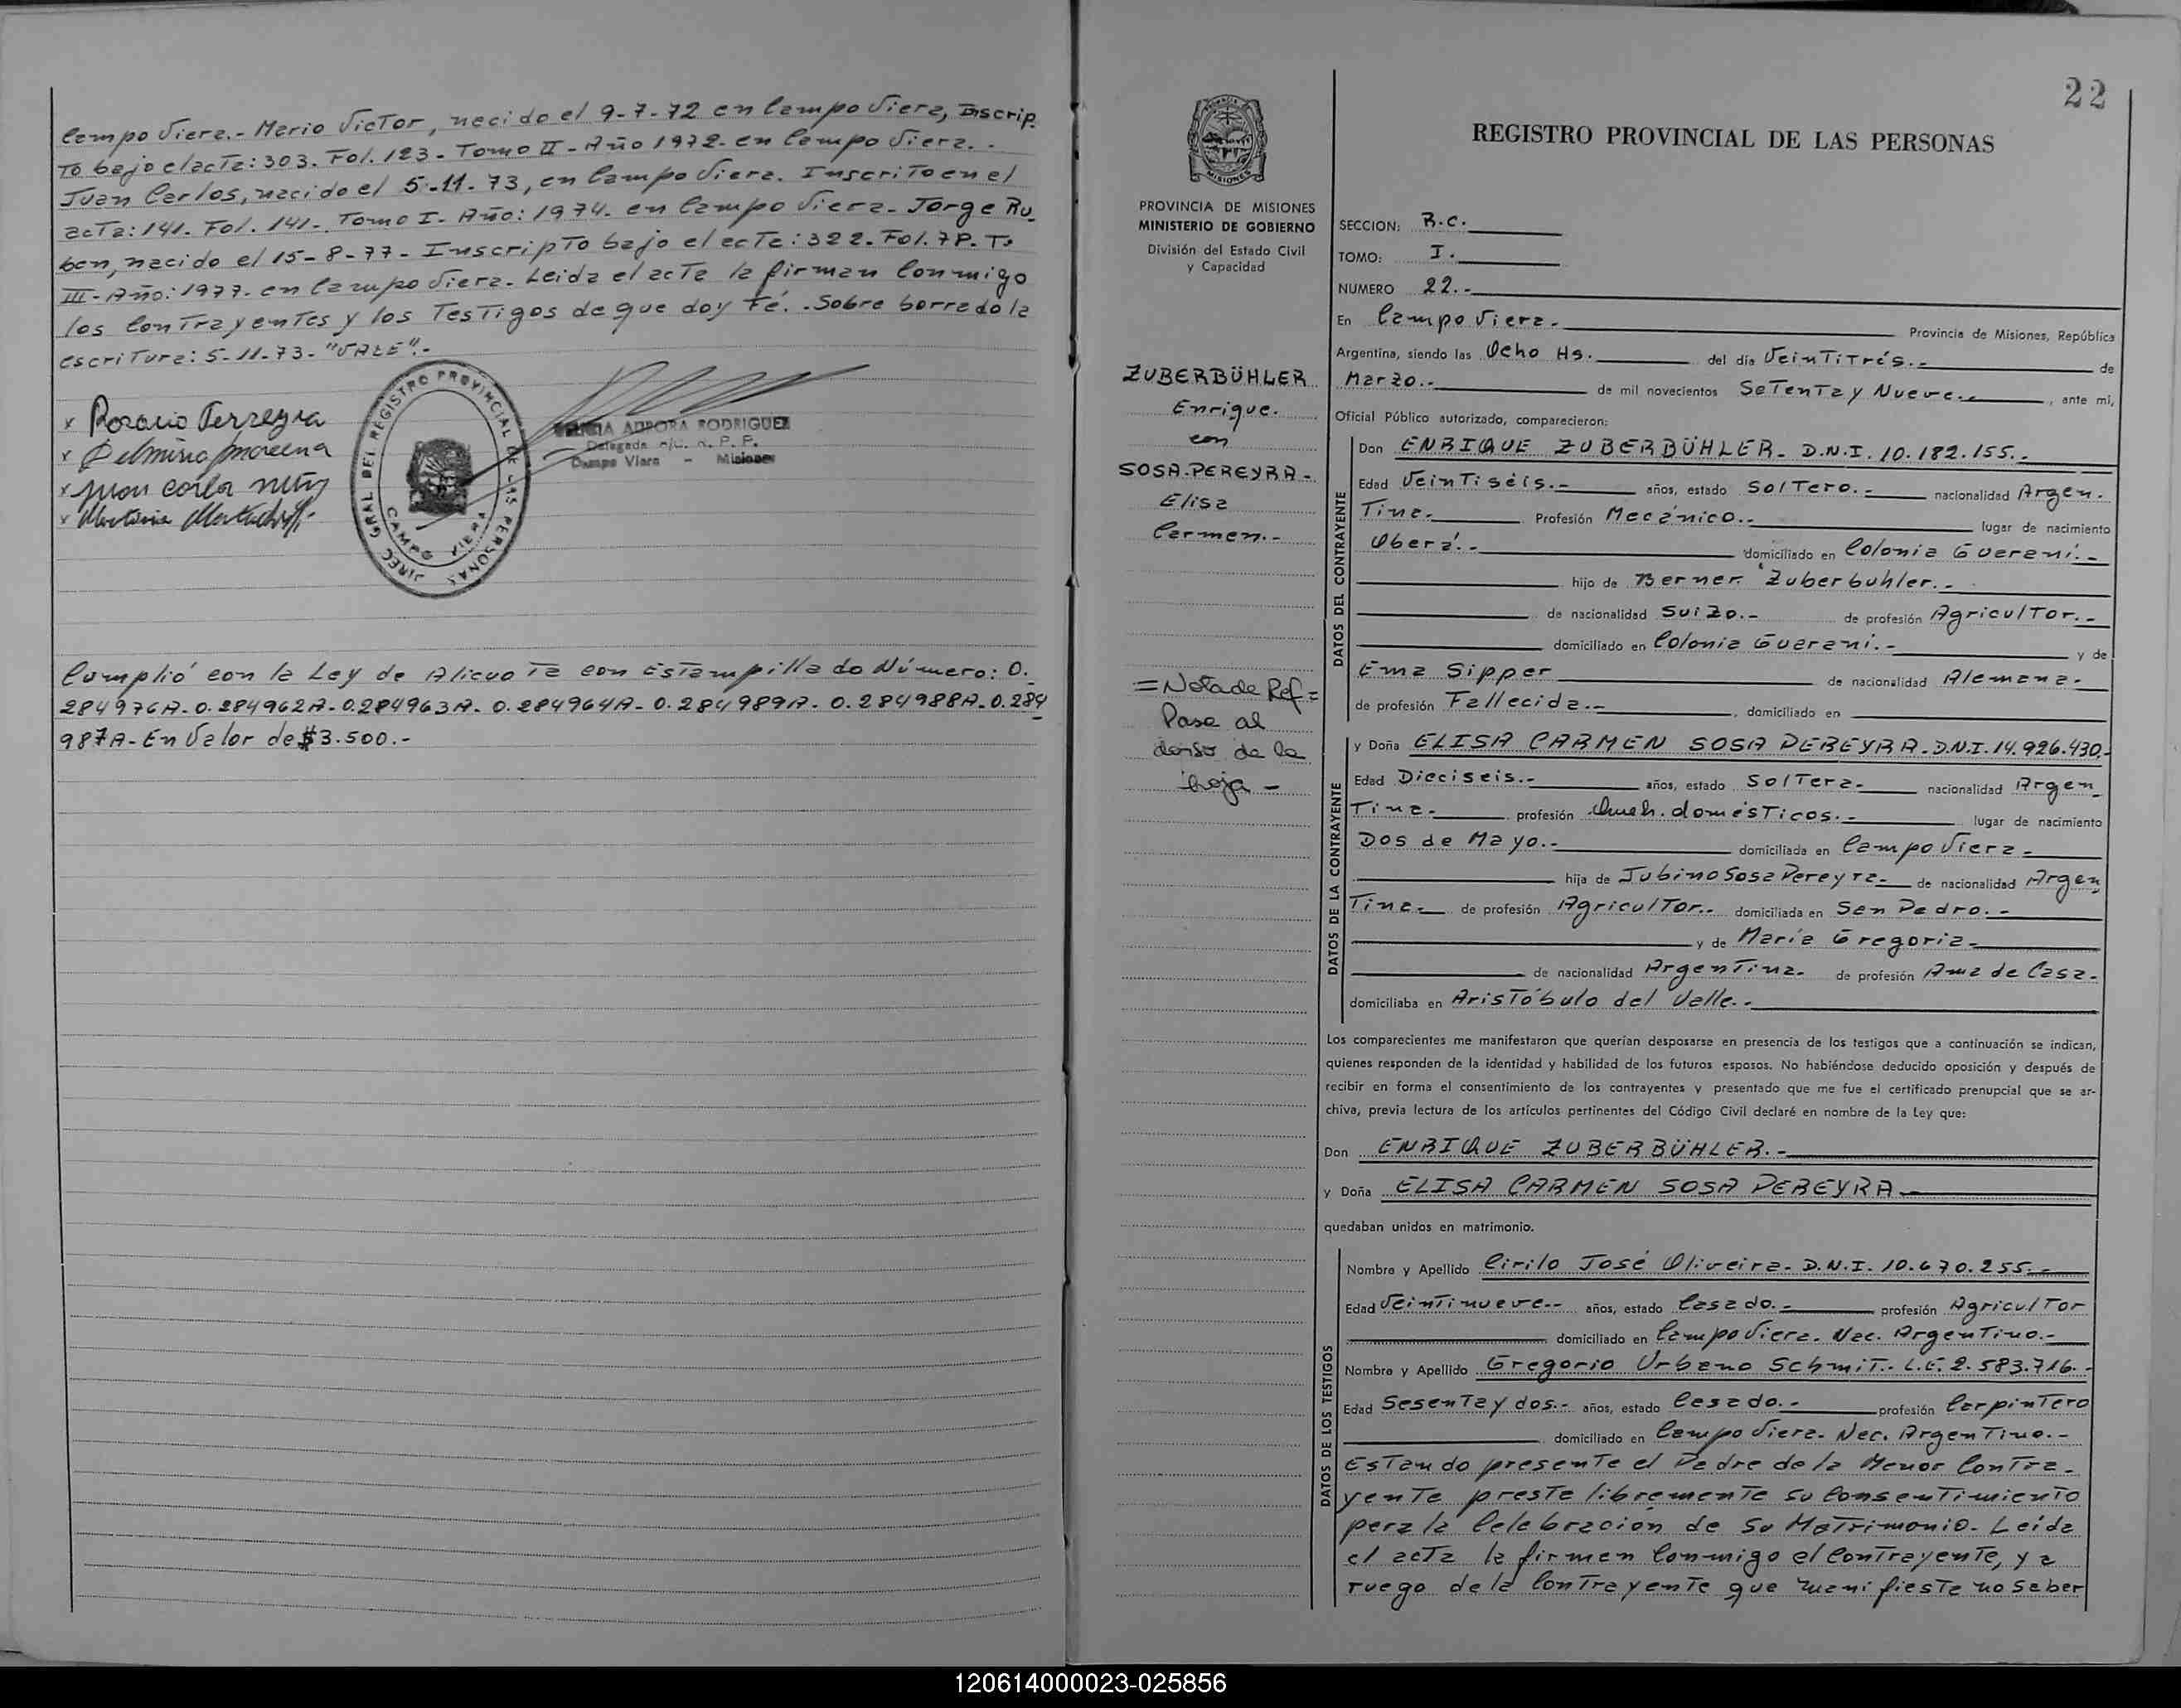 Campo Viera.- Mario Victor, nacido el 9-7-72 en Campo Viera, Inscrip-
to bajo el acta: 303. Fol. 123- Tomo II- Año 1972- en Campo Viera.-
Juan Carlos, nacido el 5-11-73, en Campo Viera. Inscrito en el
acta: 141. Fol. 141- Tomo I- Año: 1974- en Campo Viera- Jorge Ru-
ben, nacido el 15-8-77- Inscripto bajo el acta: 322. Fol. 78. T:
III- Año: 1977- en Campo Viera- Leida el acta la firman Conmigo
los Contrayentes y los Testigos de que doy Fé.- Sobre borrado la
escritura: 5-11-73- "VALE".-
AURORA RODRIGUEZ
Delegada R. P. P.
Campo Viera - Misiones
DIREC. GRAL. DEL REGISTRO PROVINCIAL DE LAS PERSONAS
CAMPO VIERA
Cumplió con la Ley de Alicuota con Estampillado Número: 0.
284976A- 0.284962A- 0.284963A- 0.284964A- 0.284989A- 0.284988A- 0.284
987A- En Valor de $3.500.-
22
PROVINCIA DE MISIONES
MINISTERIO DE GOBIERNO
División del Estado Civil
y Capacidad
ZUBERBÜHLER
Enrique.
con
SOSA-PEREYRA-
Elisa
Carmen.-
=Nota de Ref=
Pasa al
dorso de la
hoja-
REGISTRO PROVINCIAL DE LAS PERSONAS
SECCION: R.C.
TOMO: I.
NUMERO 22.-
En Campo Viera- Provincia de Misiones, República
Argentina, siendo las Ocho Hs. del día Veintitrés.- de
Marzo.- de mil novecientos Setenta y Nueve.-, ante mí,
Oficial Público autorizado, comparecieron:
DATOS DEL CONTRAYENTE
Don ENRIQUE ZUBERBÜHLER- D.N.I. 10.182.155.-
Edad Veintiséis.- años, estado Soltero.- nacionalidad Argen-
tina- Profesión Mecánico.- lugar de nacimiento
Oberá.- domiciliado en Colonia Guaraní.-
hijo de Berner Zuberbuhler.-
de nacionalidad Suizo.- de profesión Agricultor.-
domiciliado en Colonia Guarani.- y de
Ema Sipper de nacionalidad Alemana-
de profesión Fallecida.-, domiciliado en
DATOS DE LA CONTRAYENTE
y Doña ELISA CARMEN SOSA PEREYRA- D.N.I. 14.926.430.-
Edad Dieciseis.- años, estado Soltera- nacionalidad Argen-
tina- profesión Queh. domésticos.- lugar de nacimiento
Dos de Mayo.- domiciliada en Campo Viera-
hija de Jubino Sosa Pereyra- de nacionalidad Argen-
tina- de profesión Agricultor.- domiciliada en San Pedro.-
y de María Gregoria-
de nacionalidad Argentina- de profesión Ama de Casa-
domiciliaba en Aristóbulo del Valle.-
Los comparecientes me manifestaron que querían desposarse en presencia de los testigos que a continuación se indican,
quienes responden de la identidad y habilidad de los futuros esposos. No habiéndose deducido oposición y después de
recibir en forma el consentimiento de los contrayentes y presentado que me fue el certificado prenupcial que se ar-
chiva, previa lectura de los artículos pertinentes del Código Civil declaré en nombre de la Ley que:
Don ENRIQUE ZUBERBÜHLER.-
y Doña ELISA CARMEN SOSA PEREYRA-
quedaban unidos en matrimonio.
DATOS DE LOS TESTIGOS
Nombre y Apellido Cirilo José Oliveira- D.N.I. 10.670.255.-
Edad Veintinueve.- años, estado Casado.- profesión Agricultor
domiciliado en Campo Viera- Nac. Argentino.-
Nombre y Apellido Gregorio Urbano Schmit.- L.E. 2.583.716.-
Edad Sesenta y dos.- años, estado Casado.- profesión Carpintero
domiciliado en Campo Viera- Nac. Argentino.-
Estando presente el Padre de la Menor Contra-
yente presta libremente su Consentimiento
para la Celebración de su Matrimonio- Leída
el acta la firman Conmigo el Contrayente, y a
ruego de la Contrayente que manifiesta no saber
120614000023-025856